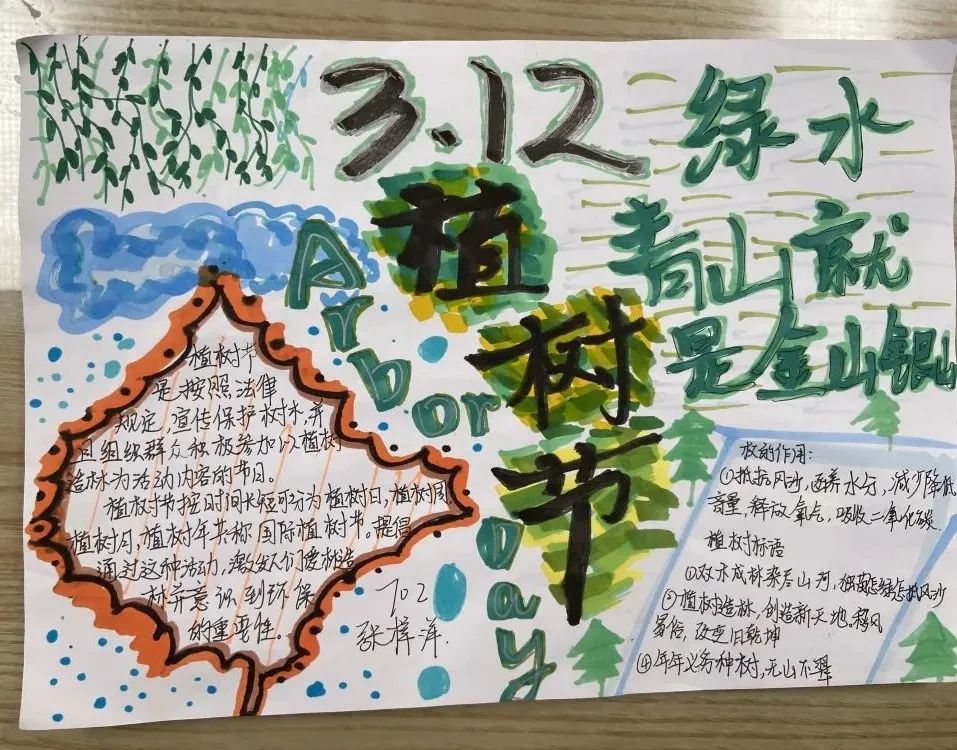 3.12
绿水
青山就
是金山银山
植
树
节
Arbor
Day
植树节
是按照法律
规定,宣传保护树林,并
且组织群众积极参加以植树
造林为活动内容的节日。
植树节按时间长短可分为植树日,植树周
植树月,植树年共称国际植树节。提倡
通过这种活动,激发人们爱林造
林并意识到环保
的重要性。
702
的作用:
①抵抗风沙,涵养水分,减少降低
音量,释放氧气,吸收二氧化碳.
植树标语
①双木成林染春山河,
②植树造林,创造新天地。移风
易俗,改变旧乾坤
④年年义务种树,无山不翠